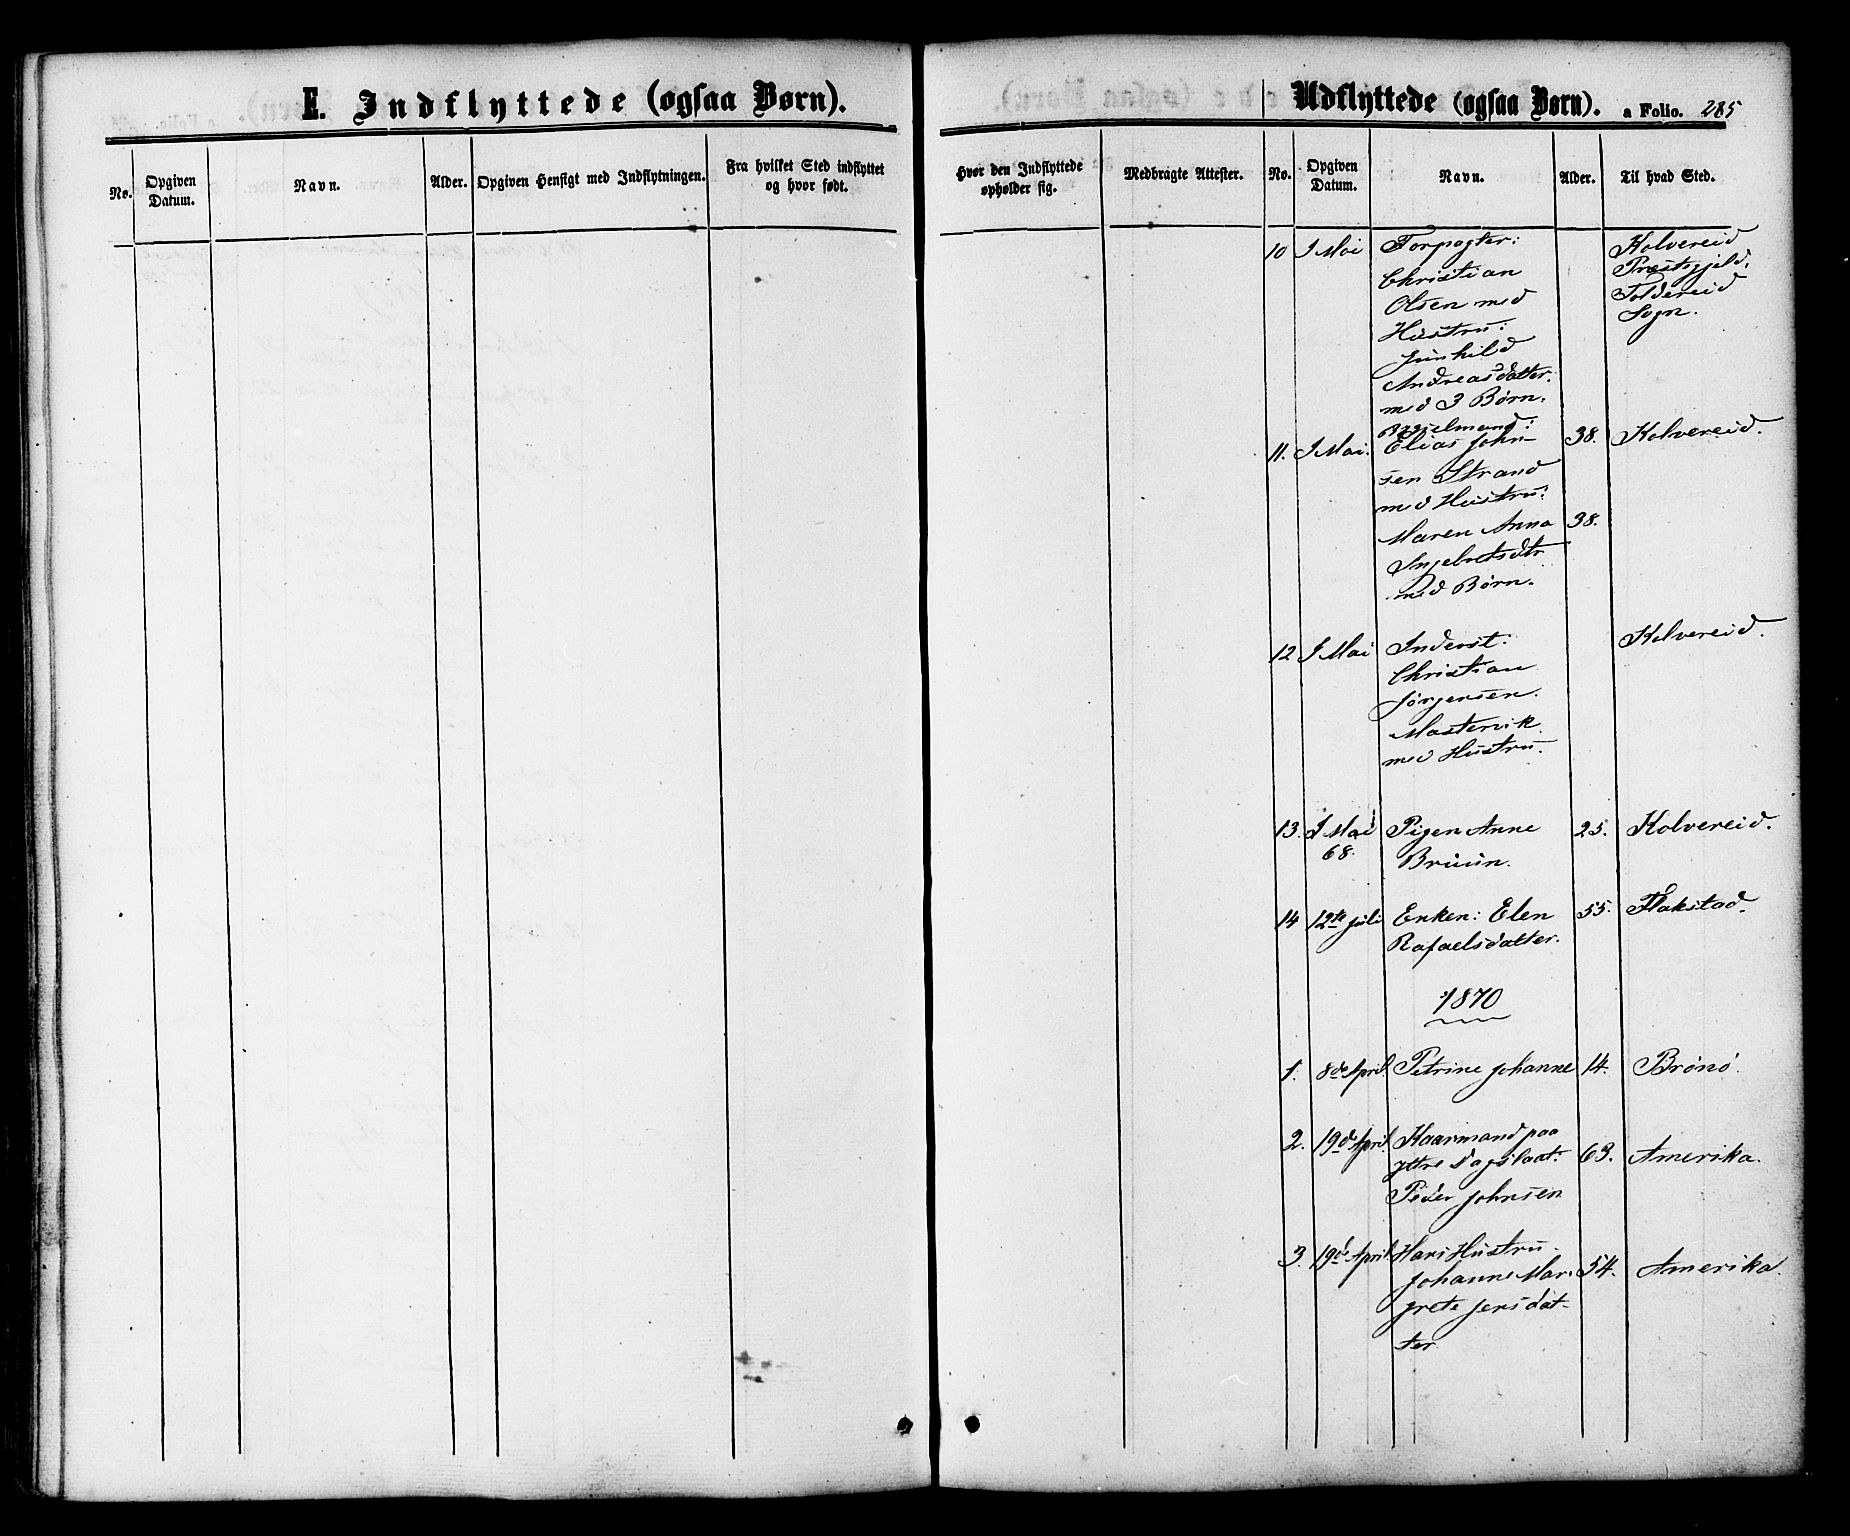 E. Indflyttede (ogsaa Børn).
No. Opgiven Datum. Navn. Alder. Opgiven Hensigt med Indflytningen. Fra hvilket Sted indflyttet og hvor født.
Hvor den Indflyttede opholder sig. Medbragte Attester.
Udflyttede (ogsaa Børn). a Folio. 285
No. Opgiven Datum. Navn. Alder. Til hvad Sted.
10 J Mai Forpagter: Kolvereid
Christian Præstegjeld.
Olsen med Foldereid
Hustru: Sogn.
Gunhild
Andreasdatter.
med 3 Børn.
Bygselmand:
11. J Mai. Elias John- 38. Kolvereid.
sen Strand
med Hustru:
Maren Anna 38.
Ingebretsdtr
med Børn.
12 J Mai Inderst: Kolvereid.
Christian
Jørgensen.
Mastervik
med Hustru.
13. J Mai Pigen Anne 25. Kolvereid.
68. Bruun.
14 12te Juli Enken: Elen 55. Flakstad.
Rafaelsdatter.
1870
1. 8de April Petrine Johanne 14. Brønø.
2. 19de April Kaarmand paa
yttre Dagslaat: 63. Amerika.
Peder Johnsen
3. 19de April Hans Hustru.
Johanne Mar- 54. Amerika.
grete Jensdat-
ter